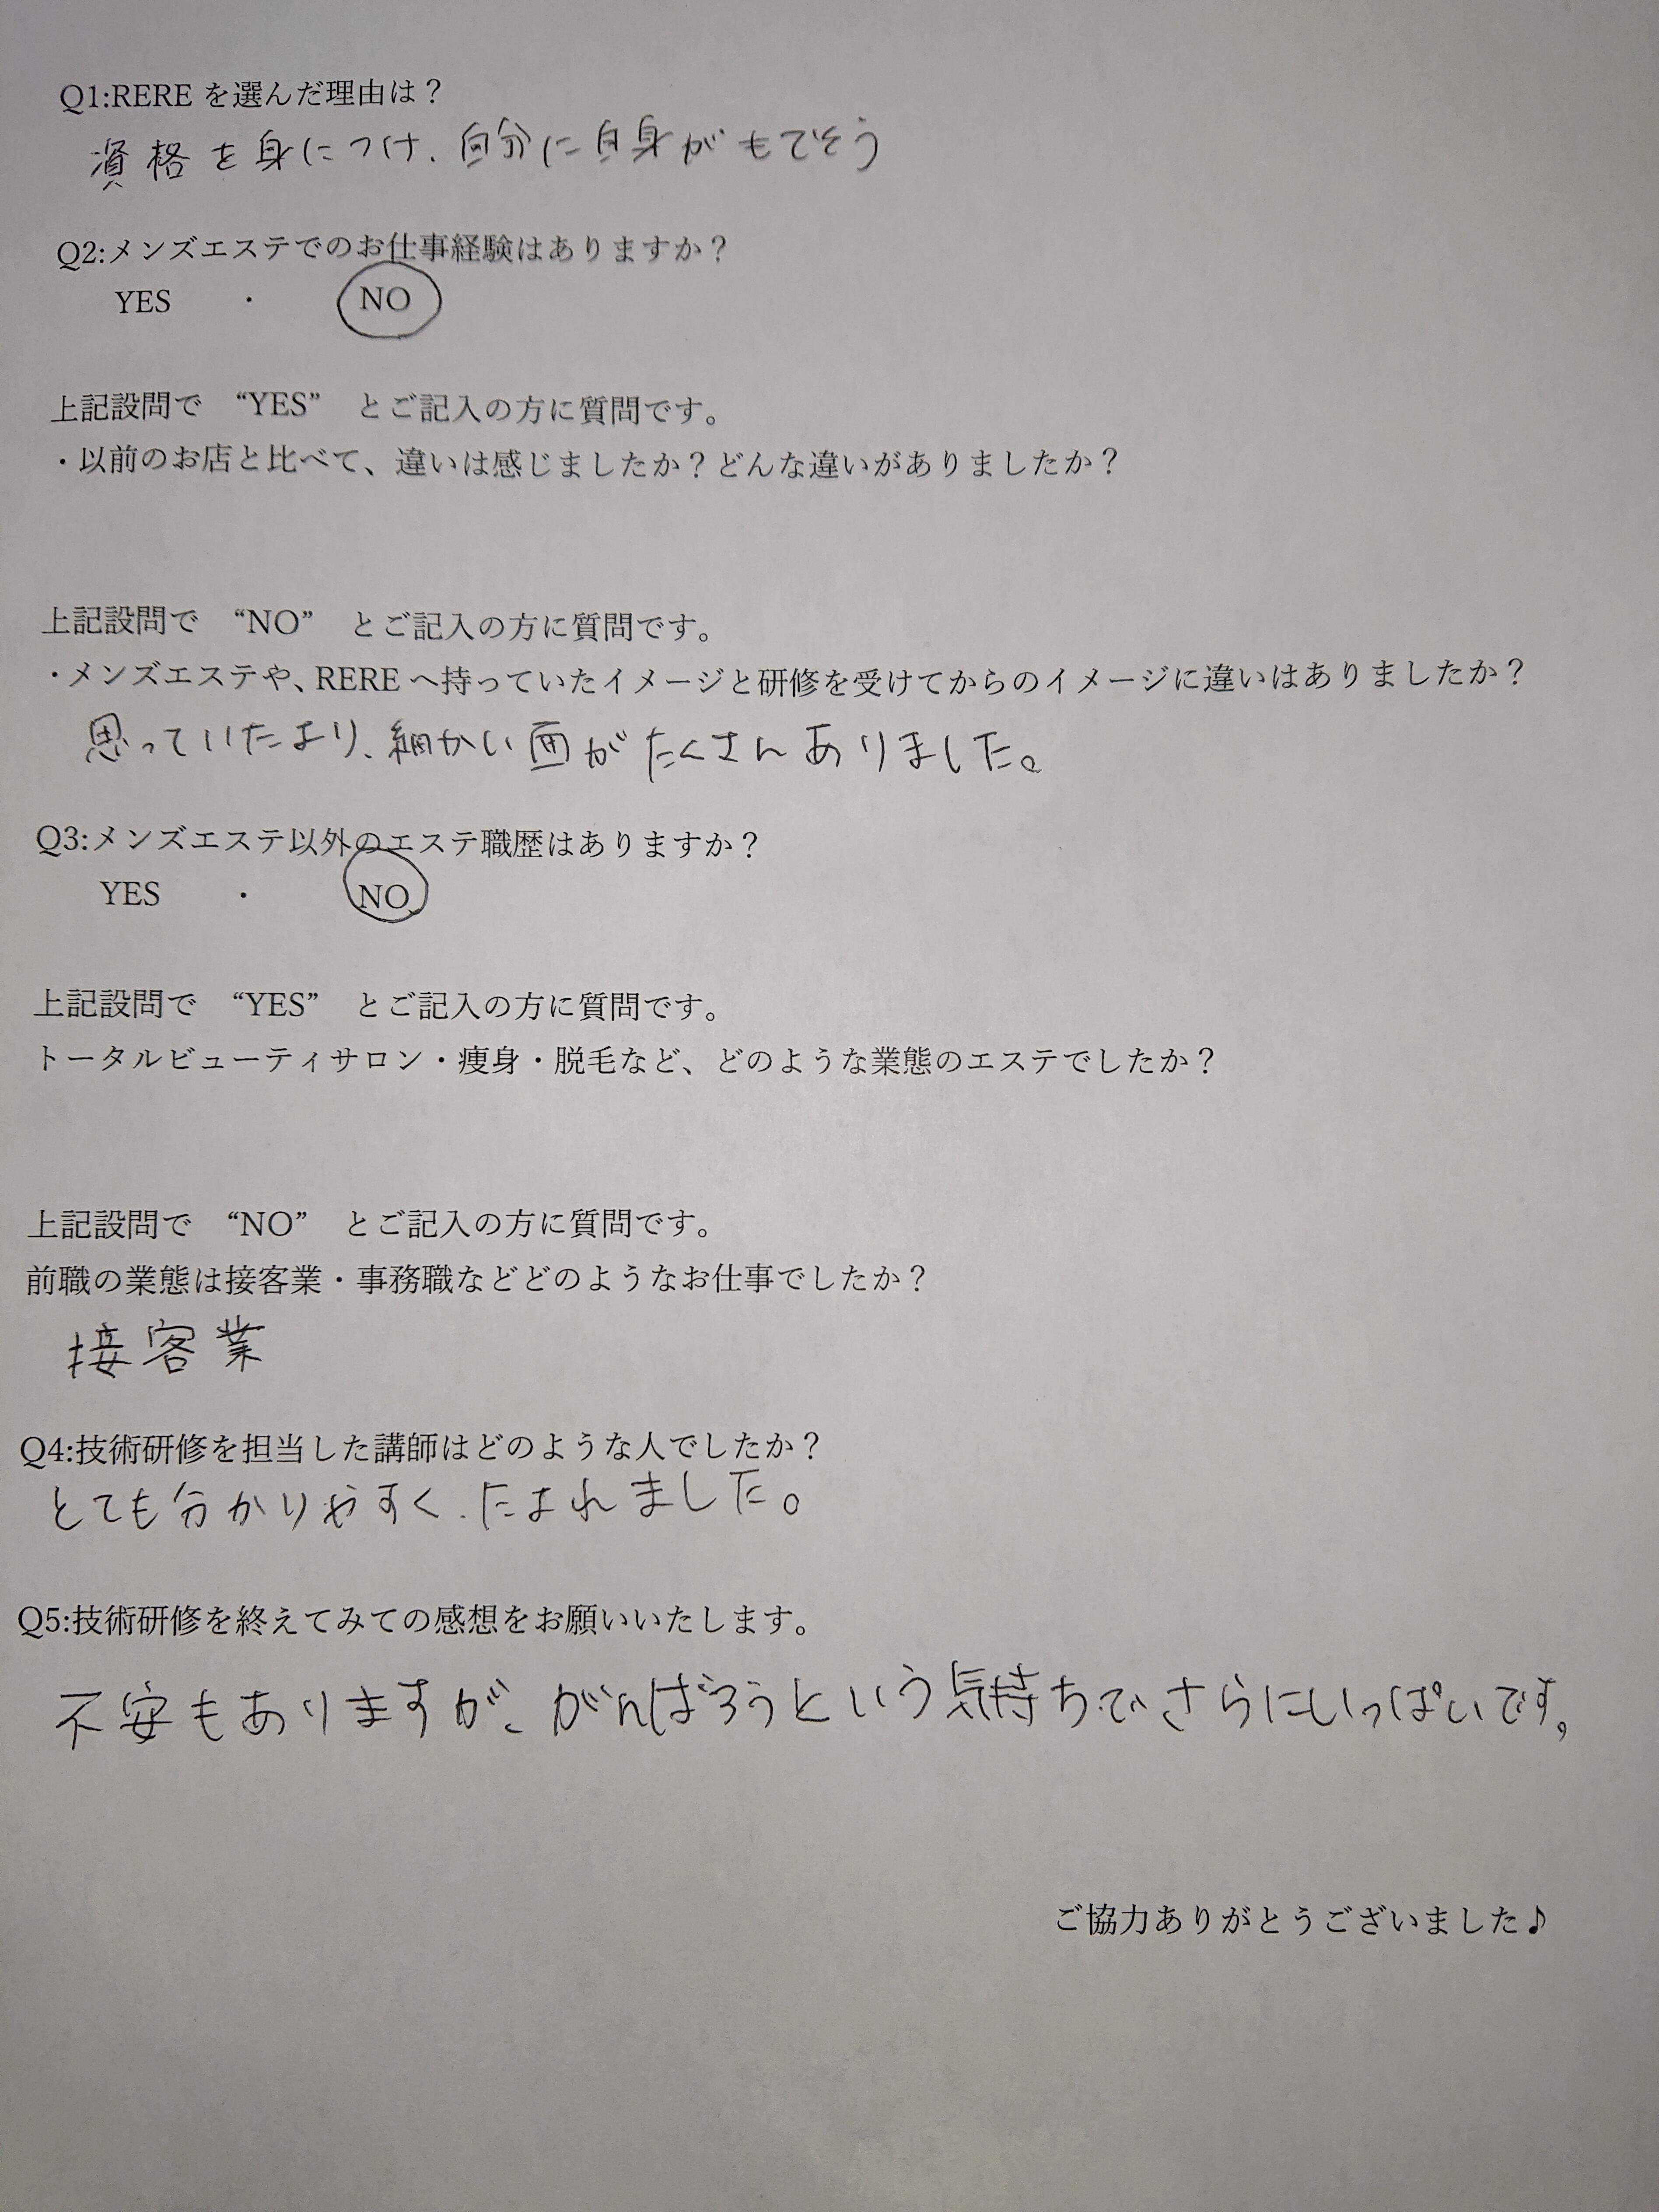 Q1:RERE を選んだ理由は？
資格を身につけ、自分に自身がもてそう
Q2:メンズエステでのお仕事経験はありますか？
YES ・ NO
上記設問で “YES” とご記入の方に質問です。
・以前のお店と比べて、違いは感じましたか？どんな違いがありましたか？
上記設問で “NO” とご記入の方に質問です。
・メンズエステや、RERE へ持っていたイメージと研修を受けてからのイメージに違いはありましたか？
思っていたより、細かい面がたくさんありました。
Q3:メンズエステ以外のエステ職歴はありますか？
YES ・ NO
上記設問で “YES” とご記入の方に質問です。
トータルビューティサロン・痩身・脱毛など、どのような業態のエステでしたか？
上記設問で “NO” とご記入の方に質問です。
前職の業態は接客業・事務職などどのようなお仕事でしたか？
接客業
Q4:技術研修を担当した講師はどのような人でしたか？
とても分かりやすく、たよれました。
Q5:技術研修を終えてみての感想をお願いいたします。
不安もありますが、がんばろうという気持ちでさらにいっぱいです。
ご協力ありがとうございました♪